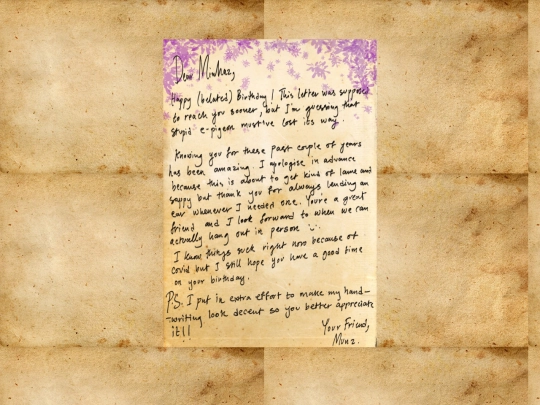 Dear Minhaz,
Happy (belated) Birthday! This letter was suppose
to reach you sooner, but I'm guessing that
stupid e-pigeon must've lost its way.
Knowing you for these past couple of years
has been amazing. I apologise in advance
because this is about to get kind of lame and
sappy but thank you for always lending an
ear whenever I needed one. You're a great
friend and I look forward to when we can
actually hang out in person
I know things suck right now because of
covid but I still hope you have a good time
on your birthday.
P.S. I put in extra effort to make my hand-
-writing look decent so you better appreciate
it!!
Your Friend,
Munz.